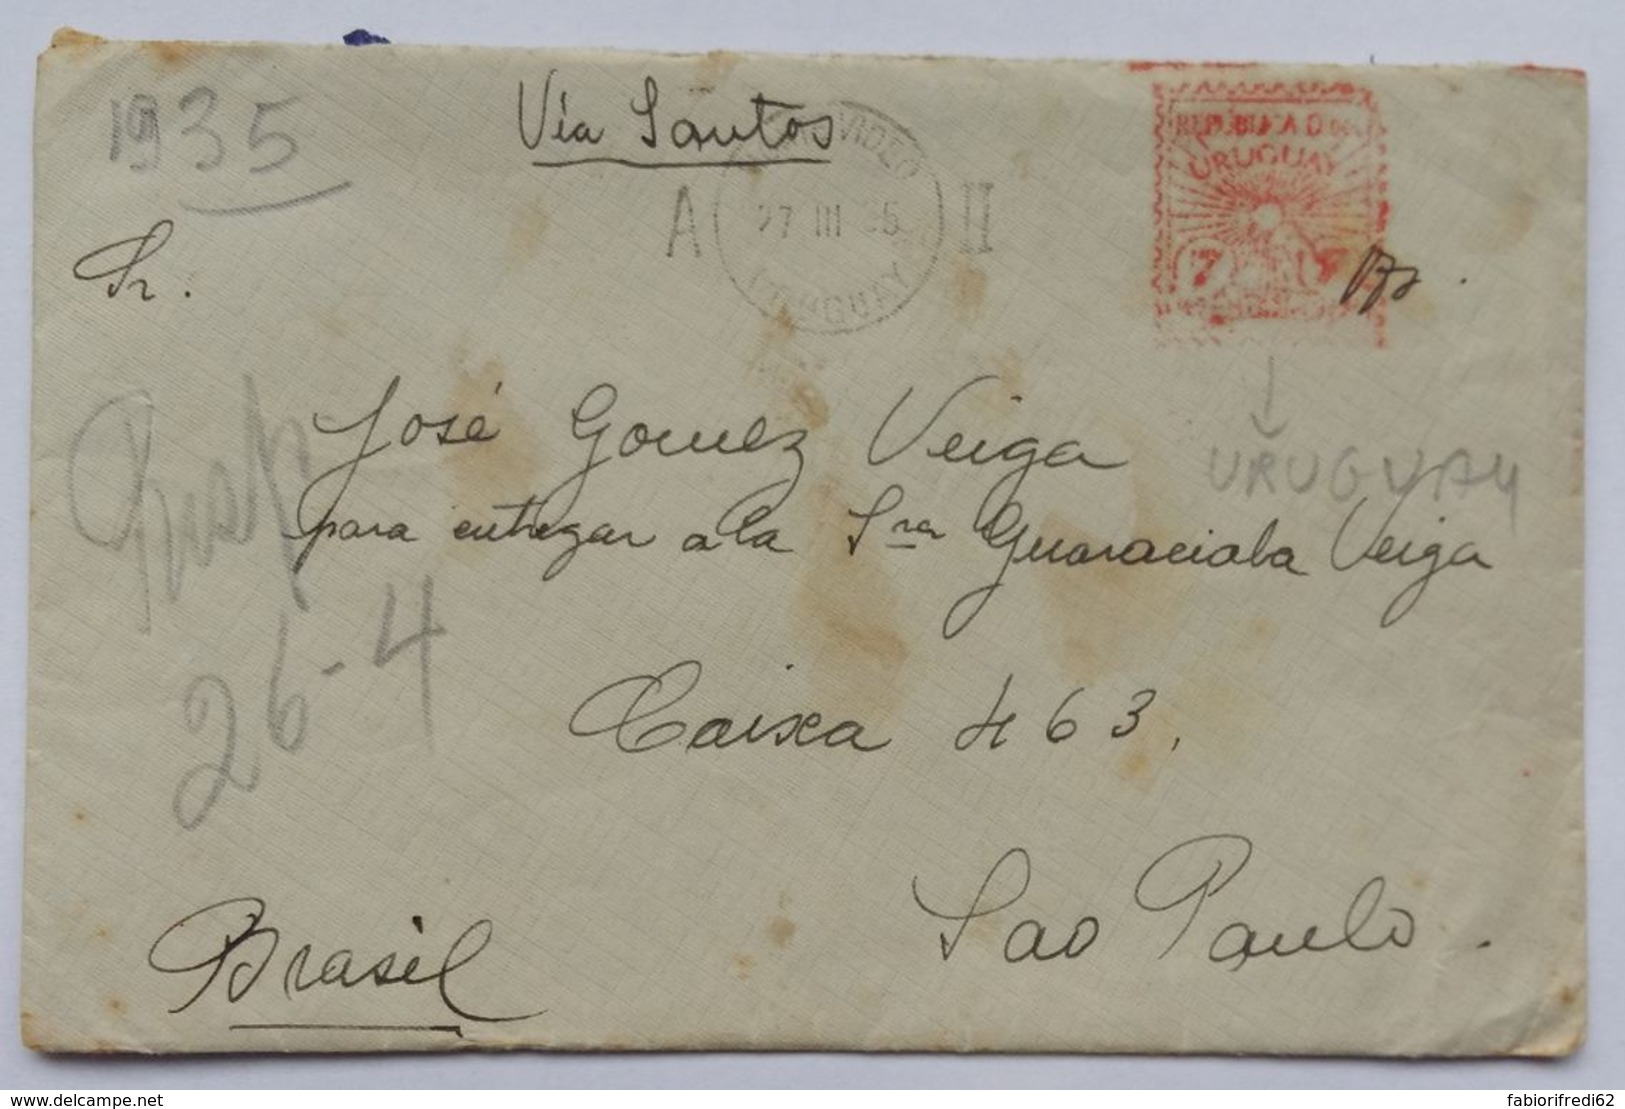 1935
Vía Santos
MONTEVIDEO
A 27 III 35 II
URUGUAY
REPUBLICA O. DEL
URUGUAY
7 7
Sr.
José Gomez Veiga
URUGUAY
para entregar a la Sra Guaraciaba Veiga
26-4
Caixa 463,
Sao Paulo.
Brasil
www.delcampe.net
fabiorifredi62